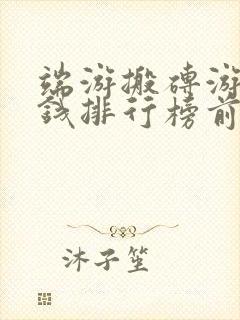 端游搬砖游
钱排行榜前
沐子笙